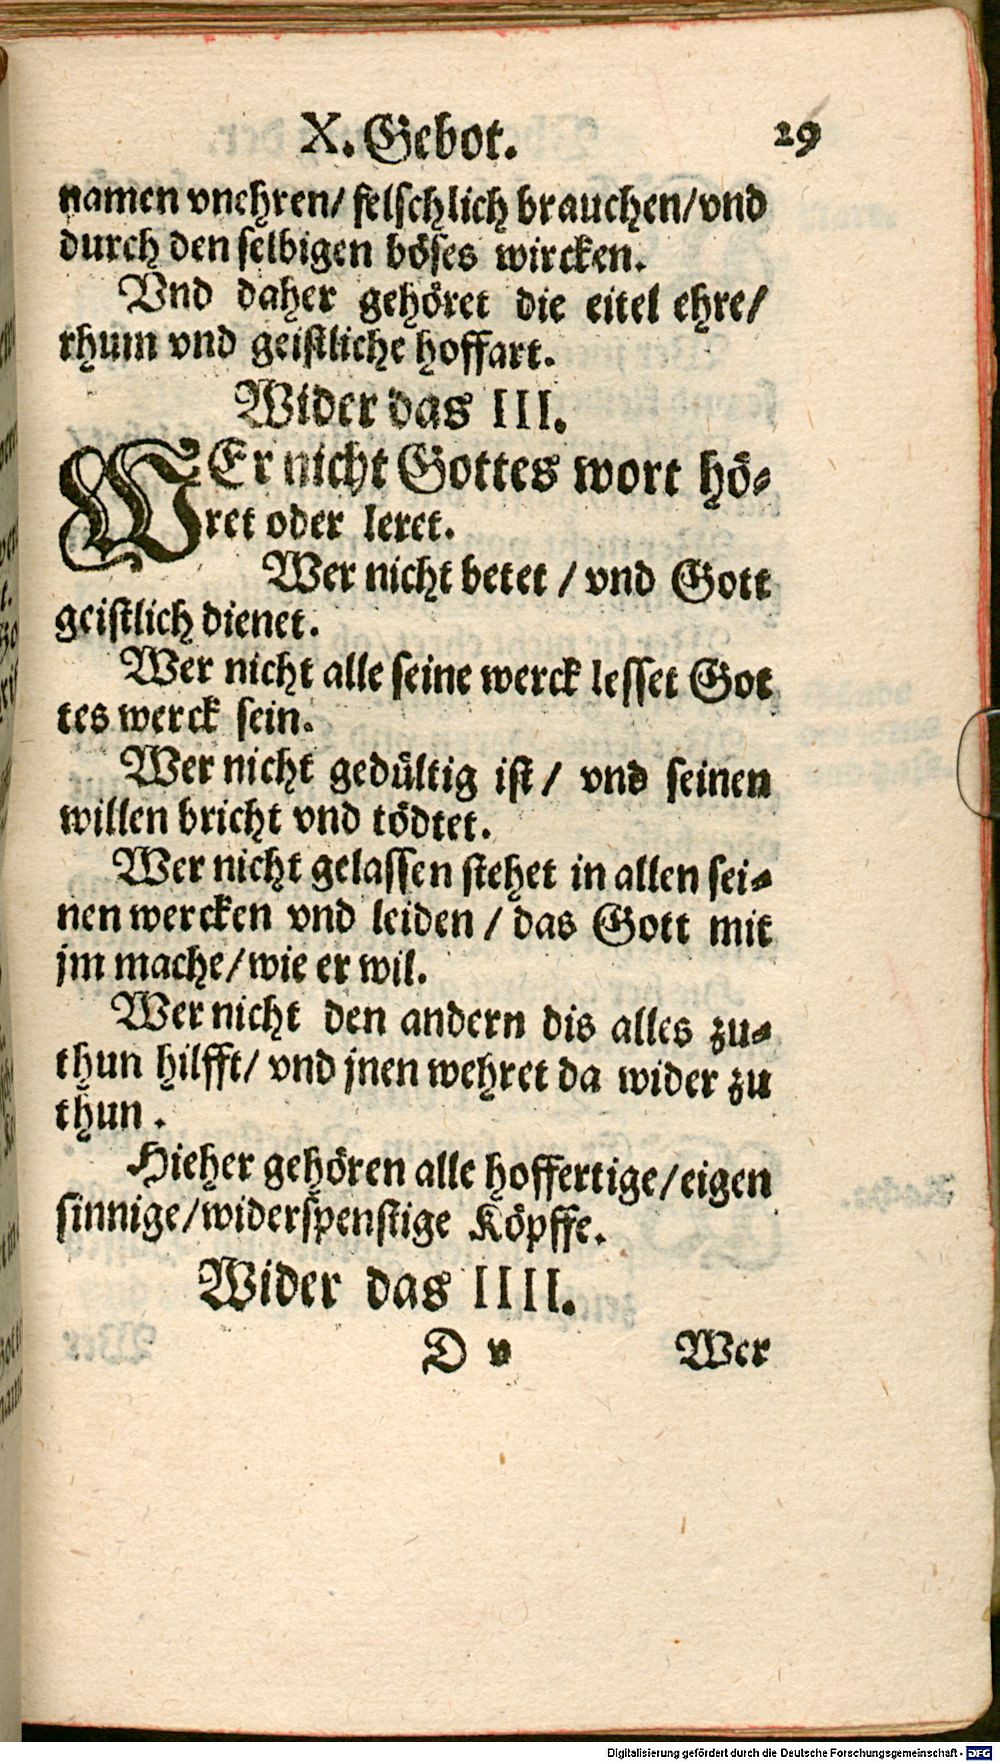 X. Gebot. 29
namen vnehren/ felschlich brauchen/vnd
durch den selbigen böses wircken.
Vnd daher gehöret die eitel ehre/
rhum vnd geistliche hoffart.
Wider das III.
WEr nicht Gottes wort hö-
ret oder leret.
Wer nicht betet / vnd Gott
geistlich dienet.
Wer nicht alle seine werck lesset Got
tes werck sein.
Wer nicht gedültig ist / vnd seinen
willen bricht vnd tödtet.
Wer nicht gelassen stehet in allen sei-
nen wercken vnd leiden / das Gott mit
jm mache/wie er wil.
Wer nicht den andern dis alles zu-
thun hilfft/ vnd jnen wehret da wider zu
thun.
Hieher gehören alle hoffertige/eigen
sinnige/widerspenstige Köpffe.
Wider das IIII.
D v Wer
Digitalisierung gefördert durch die Deutsche Forschungsgemeinschaft - DFG